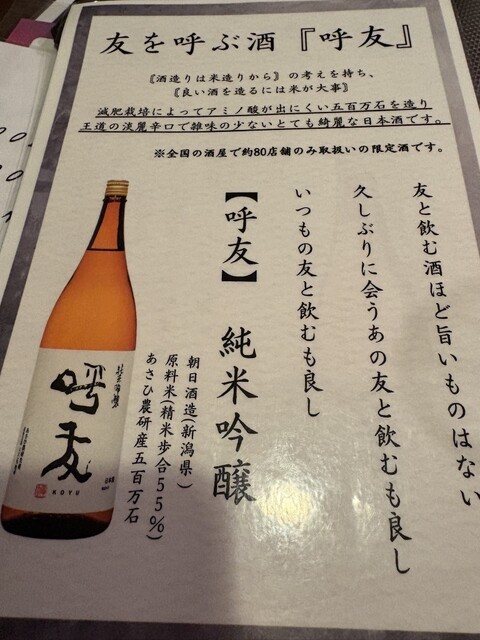 友を呼ぶ酒『呼友』
《酒造りは米造りから》の考えを持ち、
《良い酒を造るには米が大事》
減肥栽培によってアミノ酸が出にくい五百万石を造り
王道の淡麗辛口で雑味の少ないとても綺麗な日本酒です。
※全国の酒屋で約80店舗のみ取扱いの限定酒です。
友と飲む酒ほど旨いものはない
久しぶりに会うあの友と飲むも良し
いつもの友と飲むも良し
【呼友】 純米吟醸
朝日酒造(新潟県)
原料米(精米歩合55%)
あさひ農研産五百万石
純米吟醸
呼友
KOYU